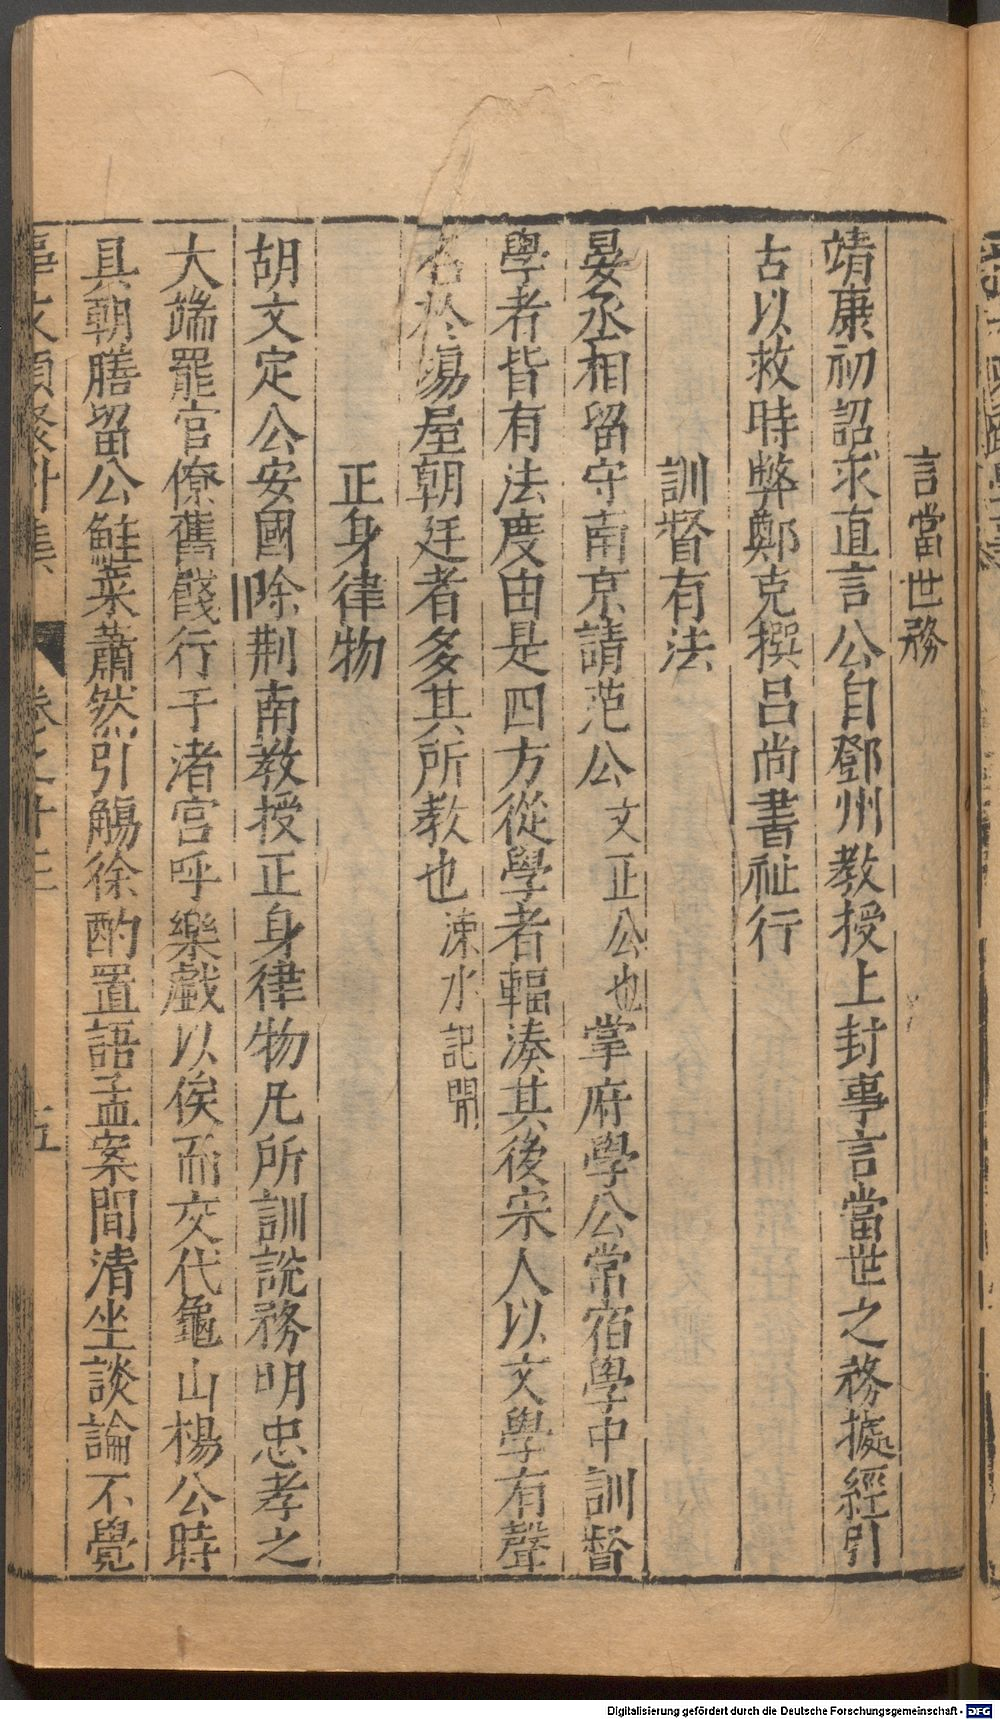 言當世務
靖康初詔求直言公自鄧州教授上封事言當世之務㨿經引
古以救時弊鄭克撰呂尚書祉行
訓督有法
晏丞相留守南京請范公文正公也掌府學公常宿學中訓督
學者皆有法度由是四方從學者輻湊其後宋人以文學有聲
名於塲屋朝廷者多其所教也涑水記聞
正身律物
胡文定公安國除荆南教授正身律物凡所訓說務明忠孝之
大端罷官僚舊餞行于渚宮呼樂戲以俟而交代龜山楊公時
具朝膳留公鮭菜蕭然引觴徐酌置語孟案間清坐談論不覺
卷之十三
五
Digitalisierung gefördert durch die Deutsche Forschungsgemeinschaft - DFG